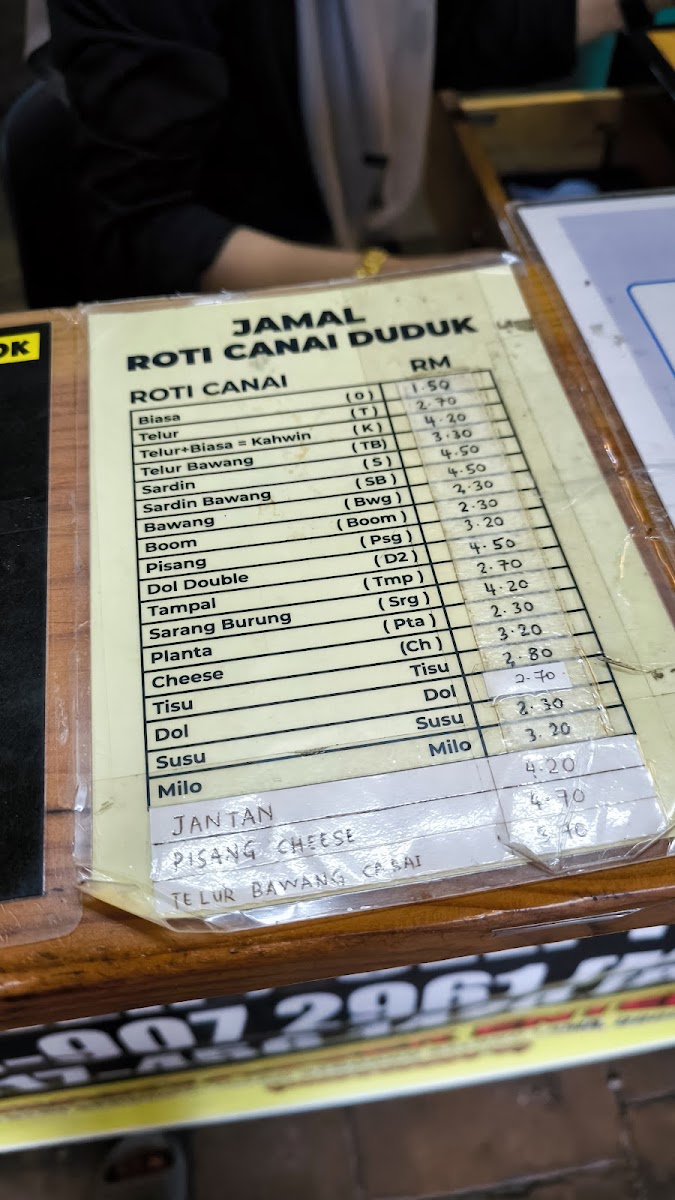 OK
JAMAL
ROTI CANAI DUDUK
ROTI CANAI RM
Biasa (0) 1.50
Telur (T) 2.70
Telur+Biasa = Kahwin (K) 4.20
Telur Bawang (TB) 3.30
Sardin (S) 4.50
Sardin Bawang (SB) 4.50
Bawang (Bwg) 2.30
Boom (Boom) 2.30
Pisang (Psg) 3.20
Dol Double (D2) 4.50
Tampal (Tmp) 2.70
Sarang Burung (Srg) 4.20
Planta (Pta) 2.30
Cheese (Ch) 3.20
Tisu Tisu 2.80
Dol Dol 2.70
Susu Susu 2.30
Milo Milo 3.20
JANTAN 4.20
PISANG CHEESE 4.70
TELUR BAWANG CABAI 3.70
-907 2961